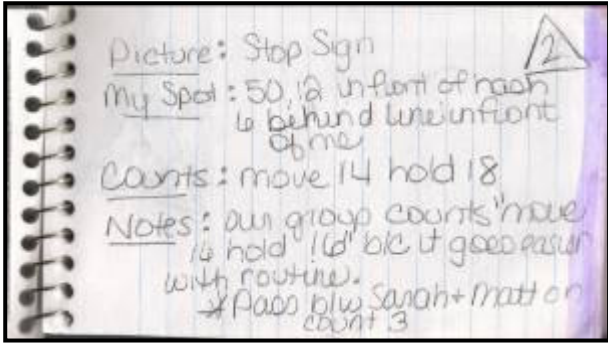 Picture: Stop Sign
2
My Spot: 50, 12 infront of hash
6 behind line infront
of me
Counts: move 14 hold 18
Notes: our group counts "move
16 hold 16" b/c it goes easier
with routine.
*Pass b/w Sarah + Matt on
count 3